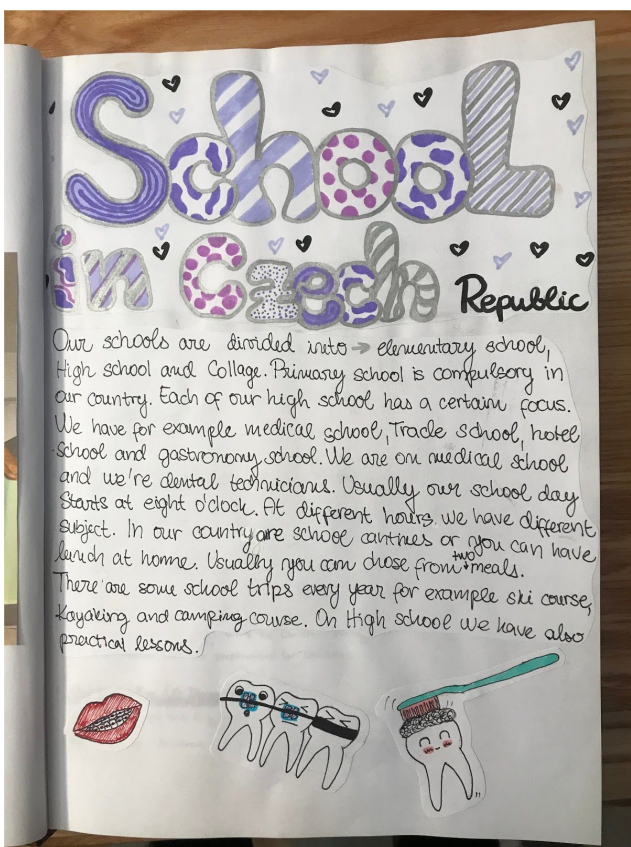 School
in Czech Republic
Our schools are divided into → elementary school,
High school and Collage. Primary school is compulsory in
our country. Each of our high school has a certain focus.
We have for example medical school, Trade school, hotel
school and gastronomy school. We are on medical school
and we're dental technicians. Usually our school day
starts at eight o'clock. At different hours we have different
subject. In our country are school cantines or you can have
lunch at home. Usually you can chose from two meals.
There are some school trips every year for example ski course,
Kayaking and camping course. On High school we have also
practical lessons.